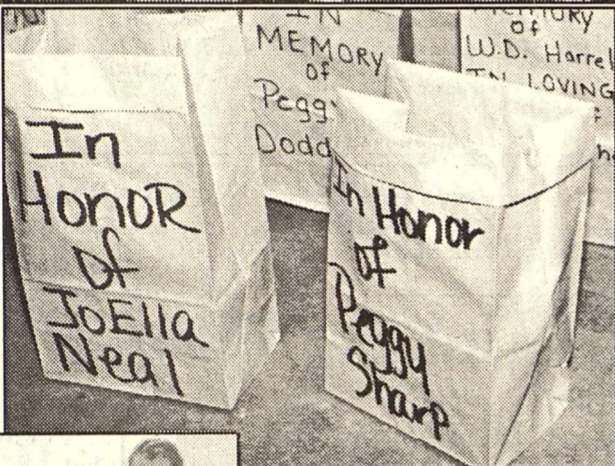 In
HonoR
of
JoElla
Neal
IN
MEMORY
of
Peggy
Dodd
In Honor
of
Peggy
Sharp
MEMORY
of
W.D. Harrel
IN LOVING